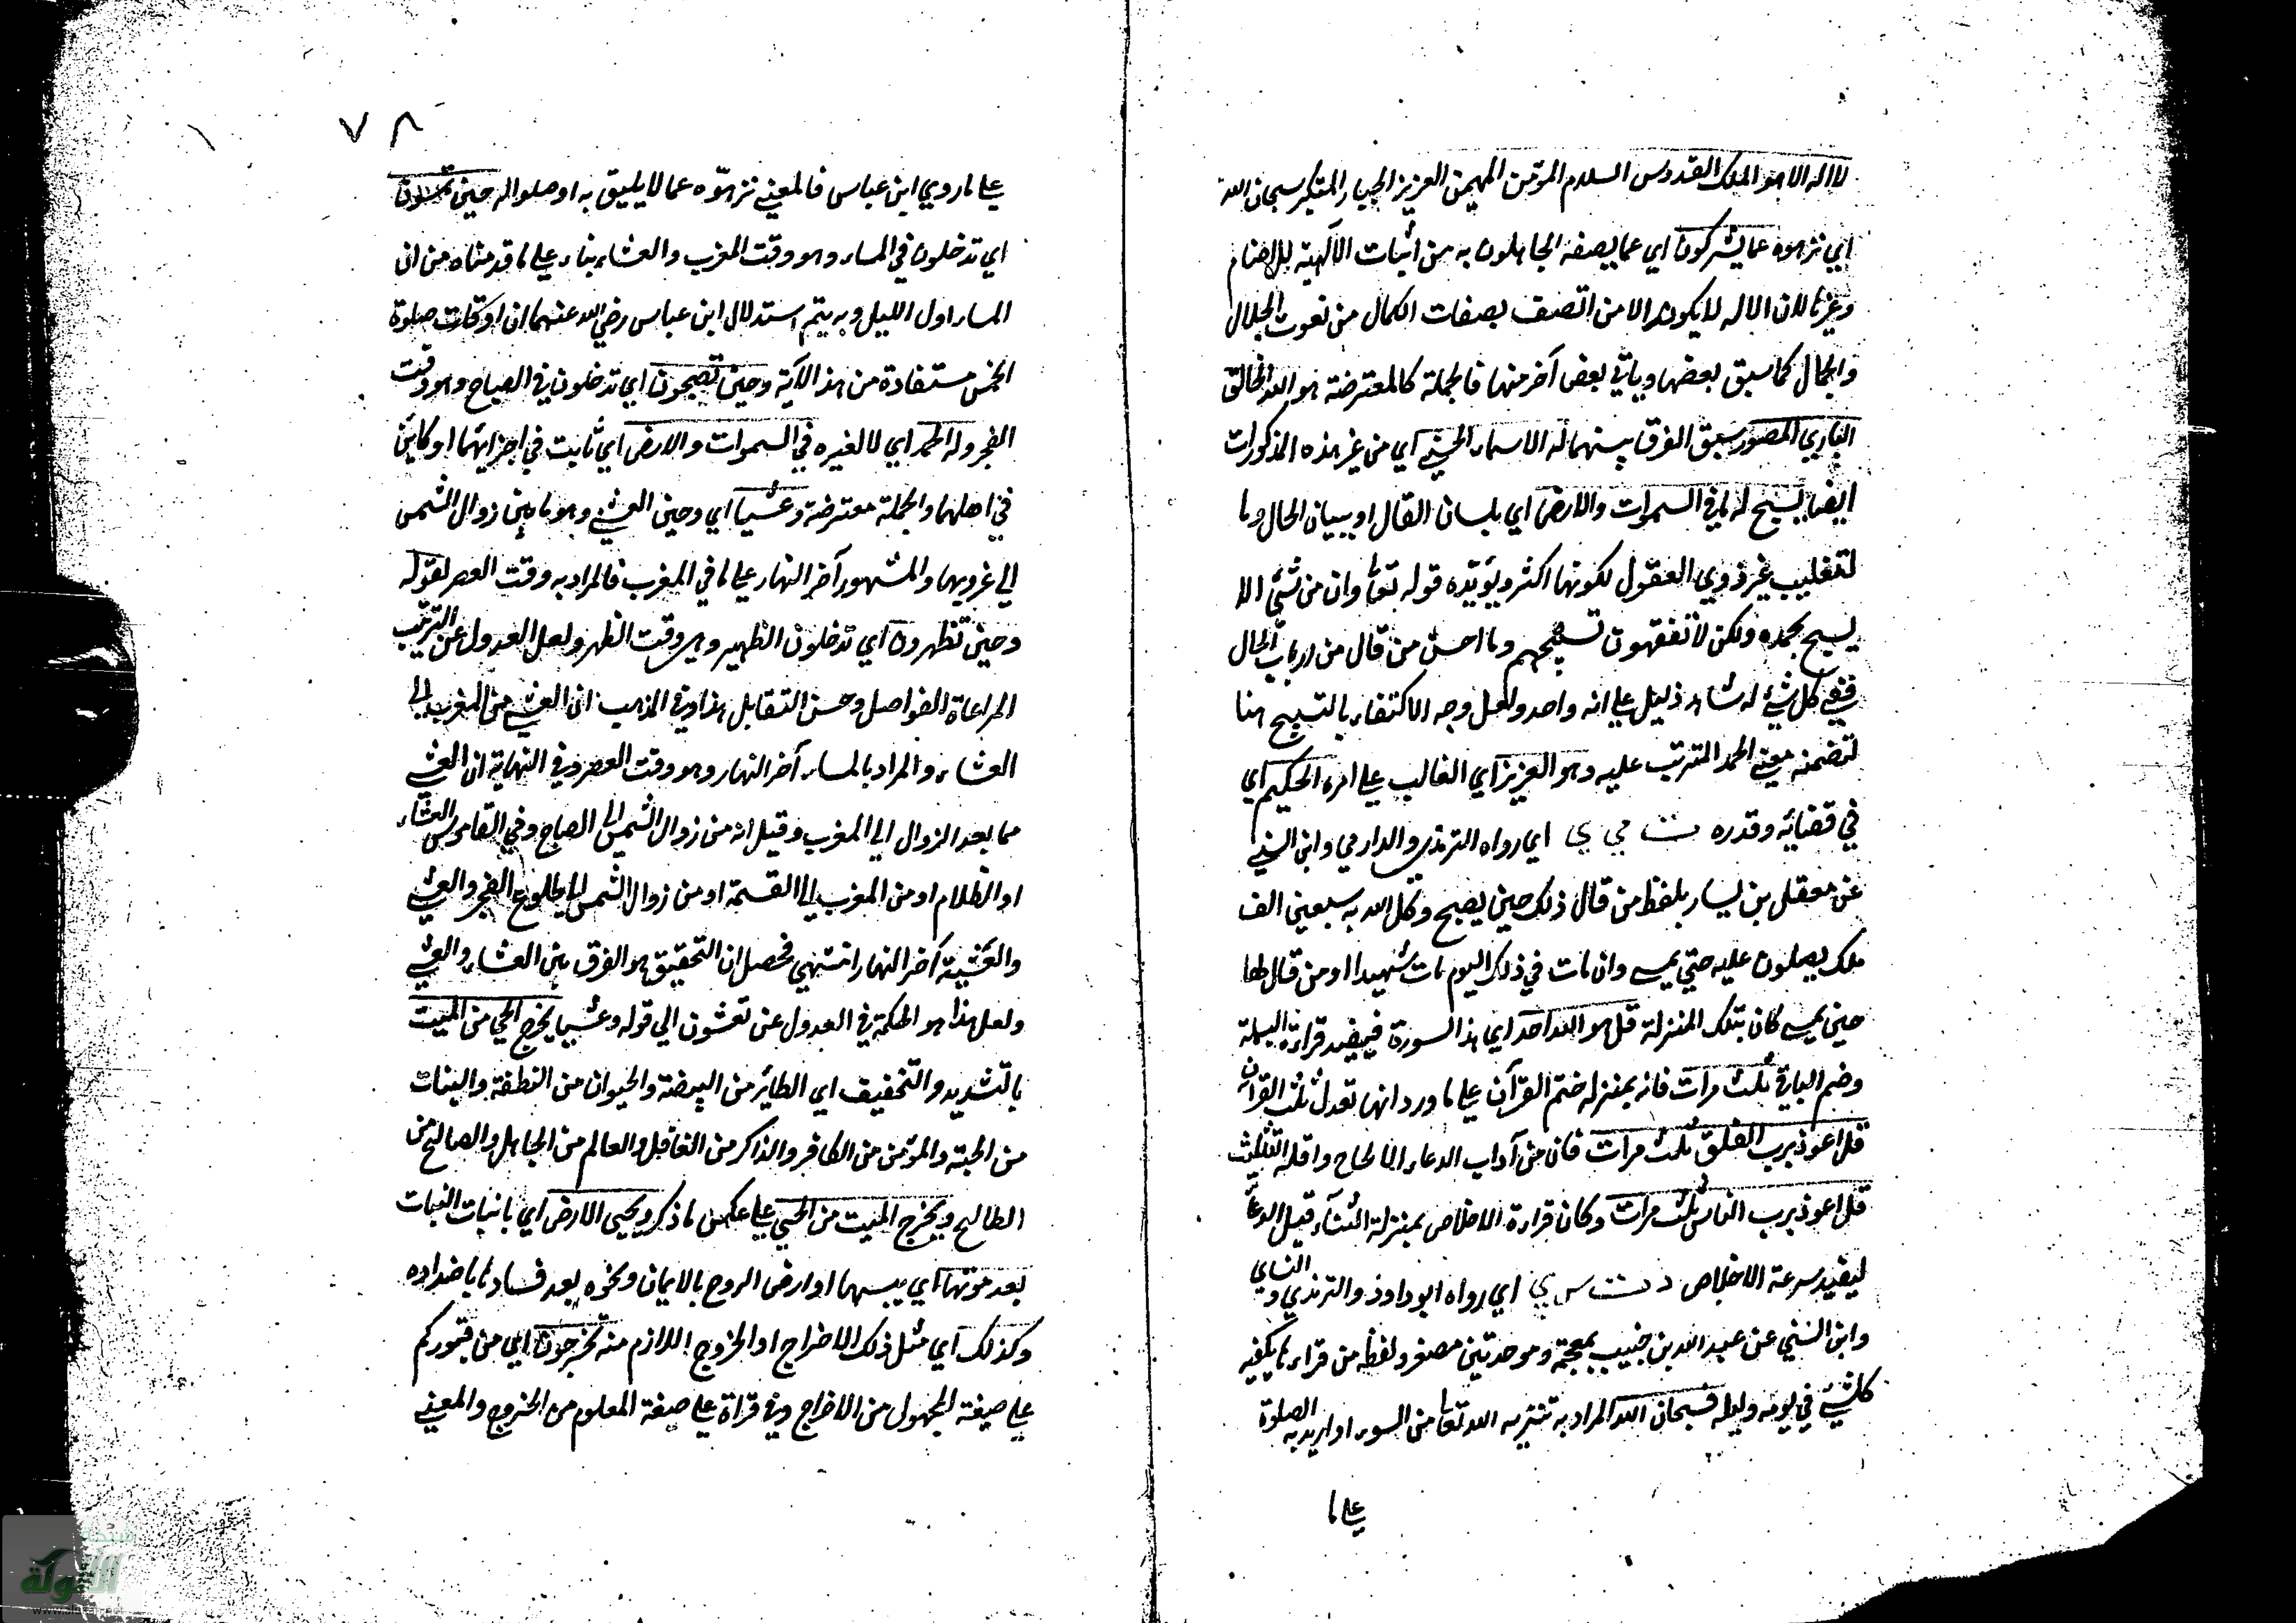 لا اله الا هو الملك القدوس السلام المؤمن المهيمن العزيز الجبار المتكبر سبحان الله
اي نزهوه عما يشركون اي عما يصفه الجاهلون به من اثبات الآلهية للاصنام
وغيرها لان الاله لا يكون الا من اتصف بصفات الكمال من نعوت الجلال
والجمال كما سبق بعضها ويأتي بعض آخر منها فالجملة كالمعترضة هو الله الخالق
الباري المصور سبق الفرق بينهما له الاسماء الحسنى اي من غير هذه المذكورات
ايضا يسبح له ما في السموات والارض اي بلسان القال او ببيان الحال وما
لتغليب غير ذوي العقول لكونها اكثر ويؤيده قوله تعا وان من شئ الا
يسبح بحمده ولكن لا تفقهون تسبيحهم وما احسن من قال من ارباب الحال
ففي كل شئ له شاهد دليل على انه واحد ولعل وجه الاكتفاء بالتسبيح هنا
لتضمنه معنى الحمد المترتب عليه وهو العزيز اي الغالب على امره الحكيم اي
في قضائه وقدره ت مي ي اي رواه الترمذي والدارمي وابن السني
عن معقل بن يسار بلفظ من قال ذلك حين يصبح وكل الله به سبعين الف
ملك يصلون عليه حتى يمسي وان مات في ذلك اليوم مات شهيدا ومن قالها
حين يمسي كان بتلك المنزلة قل هو الله احد اي هذا السورة فيفيد قراءة البسملة
وضم الباقي ثلث مرات فانه بمنزلة ختم القرآن على ما ورد انها تعدل ثلث القرآن
قل اعوذ برب الفلق ثلث مرات فان من آداب الدعاء الالحاح واقله التثليث
قل اعوذ برب الناس ثلث مرات وكان قراءة الاخلاص بمنزلة الثناء قبل الدعاء
ليفيد سرعة الاخلاص د ت س ي اي رواه ابو داود والترمذي والنسائي
وابن السني عن عبد الله بن خبيب بمعجمة وموحدتين مصغر ولفظه من قراء ما يكفيه
كل شئ في يومه وليله فسبحان الله المراد به تنزيه الله تعا من السوء او اريد به الصلوة
على ما
٧٨
على ما روي ابن عباس فالمعنى نزهوه عما لا يليق به او صلوا له حين تمسون
اي تدخلون في المساء وهو وقت المغرب والعشاء بناء على ما قدمناه من ان
المساء اول الليل وبه يتم استدلال ابن عباس رضي الله عنهما ان اوقات صلوة
الخمس مستفادة من هذ الآية وحين تصبحون اي تدخلون في الصباح وهو وقت
الفجر وله الحمد اي لا لغيره في السموات والارض اي ثابت في اجزائهما او كائن
في اهلهما والجملة معترضة وعشيا اي وحين العشي وهو ما بين زوال الشمس
الى غروبها والمشهور آخر النهار على ما في المغرب فالمراد به وقت العصر لقوله
وحين تظهرون اي تدخلون الظهير وهي وقت الظهر ولعل العدول عن الترتيب
لمراعاة الفواصل وحسن التقابل هذا وفي المذهب ان العشي من المغرب الى
العشاء والمراد بالمساء آخر النهار وهو وقت العصر وفي النهاية ان العشي
مما بعد الزوال الى المغرب وقيل انه من زوال الشمس الى الصباح وفي القاموس العشاء
او الظلام او من المغرب الى القسمة او من زوال الشمس الى طلوع الفجر والعشي
والعشية آخر النهار انتهي فحصل ان التحقيق هو الفرق بين العشاء والعشي
ولعل هذا هو الحكمة في العدول عن تعشون الى قوله وعشيا يخرج الحي من الميت
بالتشديد والتخفيف اي الطائر من البيضة والحيوان من النطفة والنبات
من الحبة والمؤمن من الكافر والذاكر من الغافل والعالم من الجاهل والصالح من
الطالح ويخرج الميت من الحي على عكس ما ذكر ويحيى الارض اي بانبات النبات
بعد موتها اي يبسها او ارض الروح بالايمان ونحوه بعد فسادها باضداده
وكذلك اي مثل ذلك الاخراج او الخروج اللازم منه تخرجون اي من قبوركم
على صيغة المجهول من الاخراج وفي قراة على صيغة المعلوم من الخروج والمعنى
شبكة
الألوكة
www.alukah.net